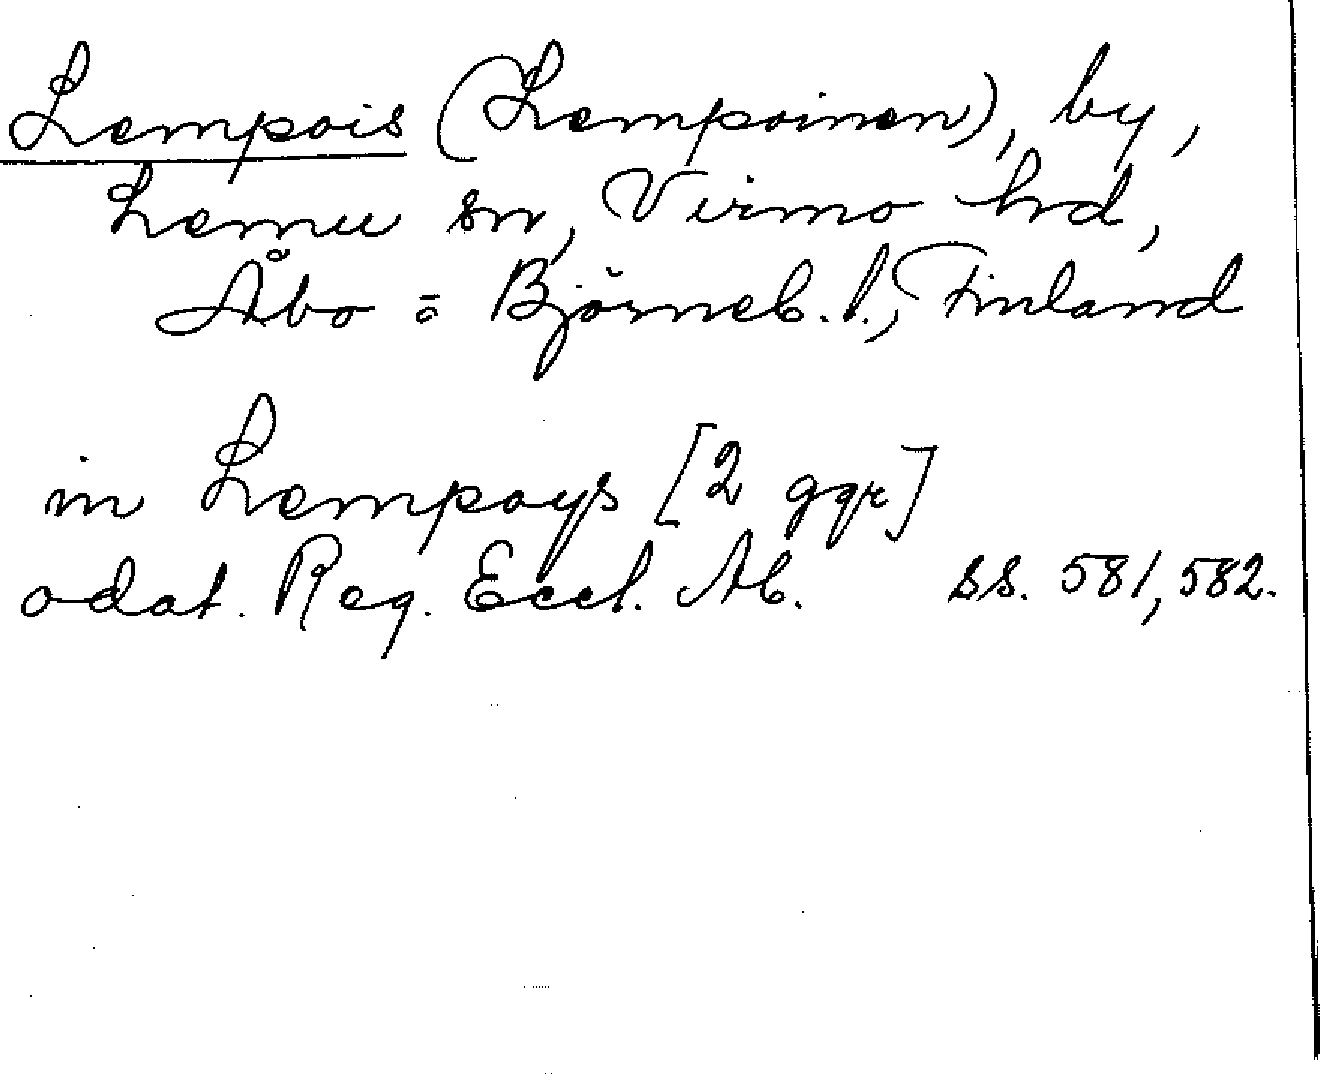 Lempois (Lempoinen), by,
Lemu sn, Virmo hd,
Åbo o. Björneb. l., Finland
in Lempoys [2 ggr]
odat. Reg. Eccl. Ab. ss. 581, 582.